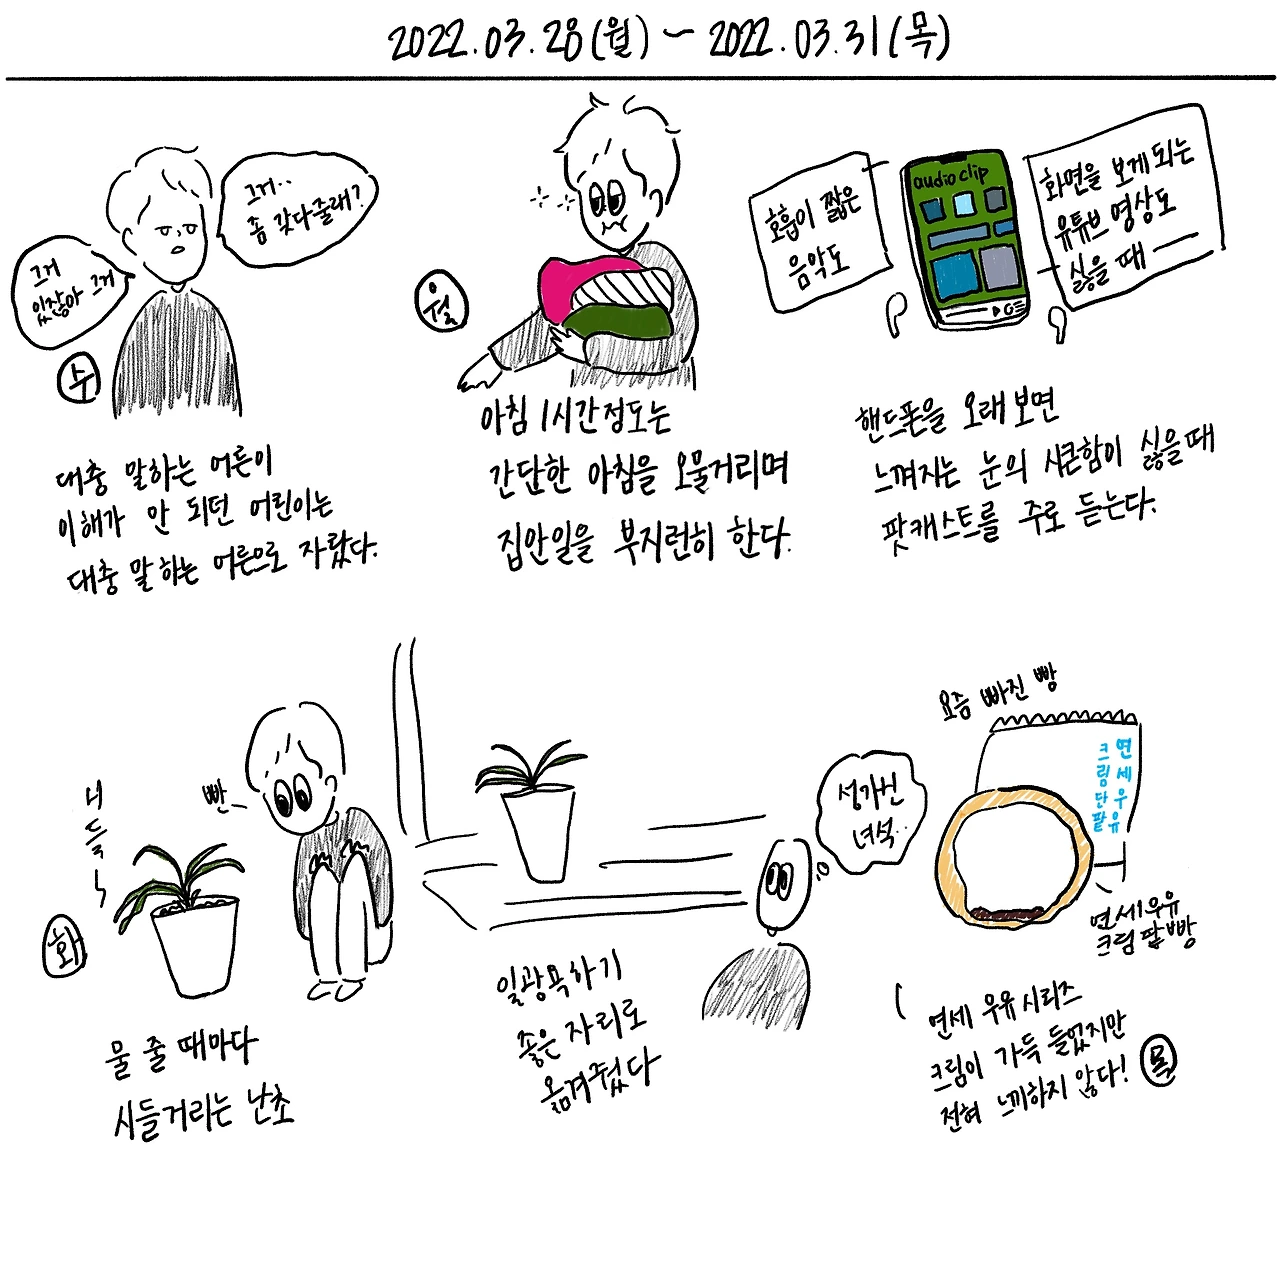 2022.03.28(월) ~ 2022.03.31(목)
그거..
좀 갖다줄래?
그거
있잖아 그거
수
대충 말하는 어른이
이해가 안 되던 어린이는
대충 말하는 어른으로 자랐다.
월
아침 1시간정도는
간단한 아침을 오물거리며
집안일을 부지런히 한다.
호흡이 짧은
음악도
audio clip
화면을 보게되는
유튜브 영상도
싫을 때
핸드폰을 오래보면
느껴지는 눈의 시큰함이 싫을때
팟캐스트를 주로 듣는다.
빤
화
물 줄 때마다
시들거리는 난초
일광욕하기
좋은 자리로
옮겨줬다
성가신
녀석..
요즘 빠진 빵
연세우유
크림단팥
연세우유
크림 팥빵
연세 우유 시리즈
크림이 가득 들었지만
전혀 느끼하지 않다!
목